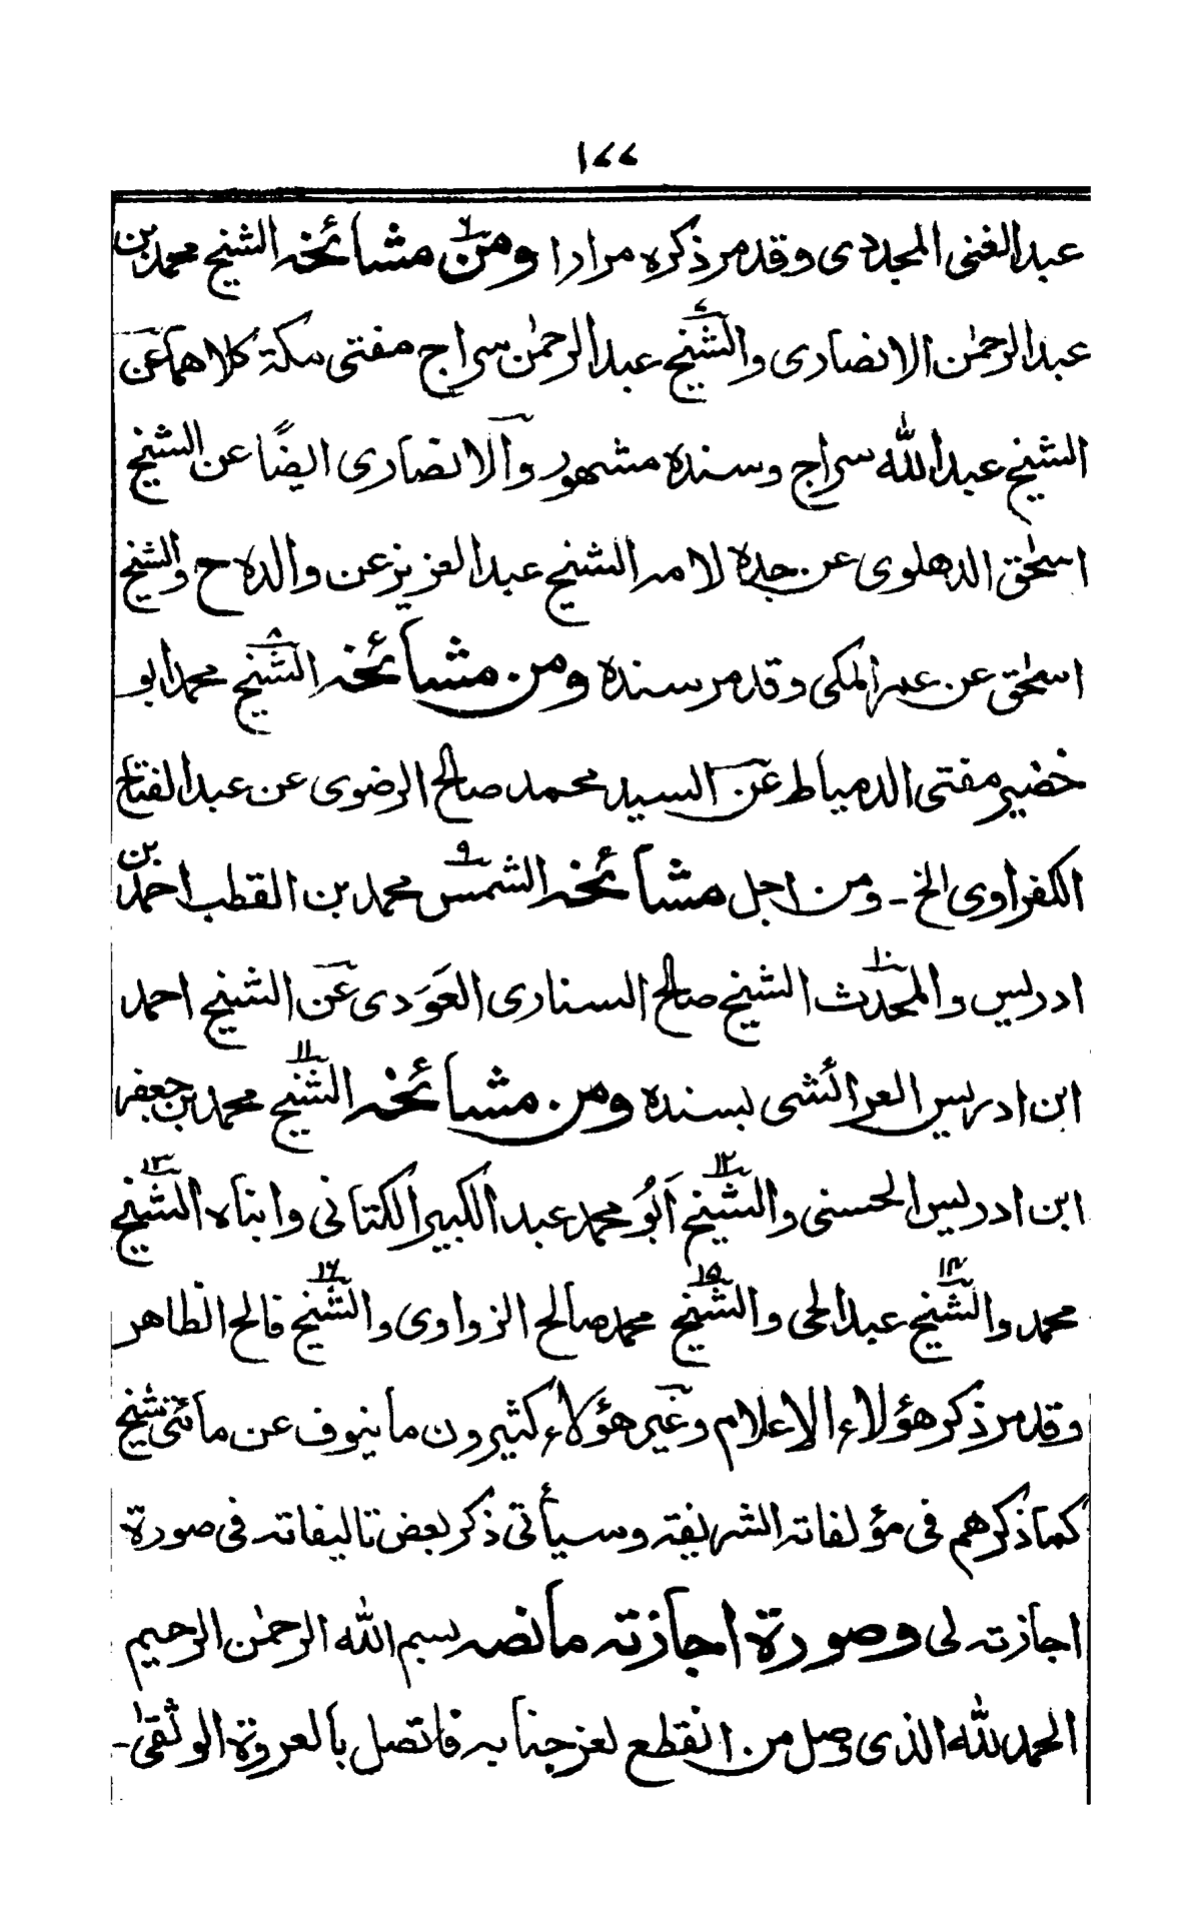 ١٧٧
عبد الغنى المجددى وقد مر ذكره مرارا ومن٦ مشائخه الشيخ محمد بن
عبد الرحمٰن الانصارى والشيخ٧ عبد الرحمٰن سراج مفتى مكة كلاهما عن
الشيخ عبد الله سراج وسنده مشهور والانصارى ايضًا عن الشيخ
اسحٰق الدهلوى عن جده لامه الشيخ عبد العزيز عن والده ح والشيخ
اسحٰق عن عمر المكى وقد مر سنده ومن مشائخه الشيخ٨ محمد ابو
خضير مفتى الدمياط عن السيد محمد صالح الرضوى عن عبد الفتاح
الكفراوى الخ - ومن اجل مشائخه الشمس٩ محمد بن القطب احمد بن
ادريس والمحدث١٠ الشيخ صالح السنارى العَوَدى عن الشيخ احمد
ابن ادريس العرائشى بسنده ومن مشائخه الشيخ١١ محمد بن جعفر
ابن ادريس الحسنى والشيخ١٢ اَبُو محمد عبد الكبير الكتانى وابناه الشيخ١٣
محمد والشيخ١٤ عبد الحى والشيخ١٥ محمد صالح الزواوى والشيخ١٦ فالح الظاهر
وقد مر ذكر هؤلاء الاعلام وغير هؤلاء كثيرون ما ينوف عن مائتى شيخ
كما ذكرهم فى مؤلفاته الشريفة وسيأتى ذكر بعض تاليفاته فى صورة
اجازته لى وصورة اجازته ما نصه بسم الله الرحمٰن الرحيم
الحمد لله الذى وصل من انقطع لعز جنابه فاتصل بالعروة الوثقىٰ -